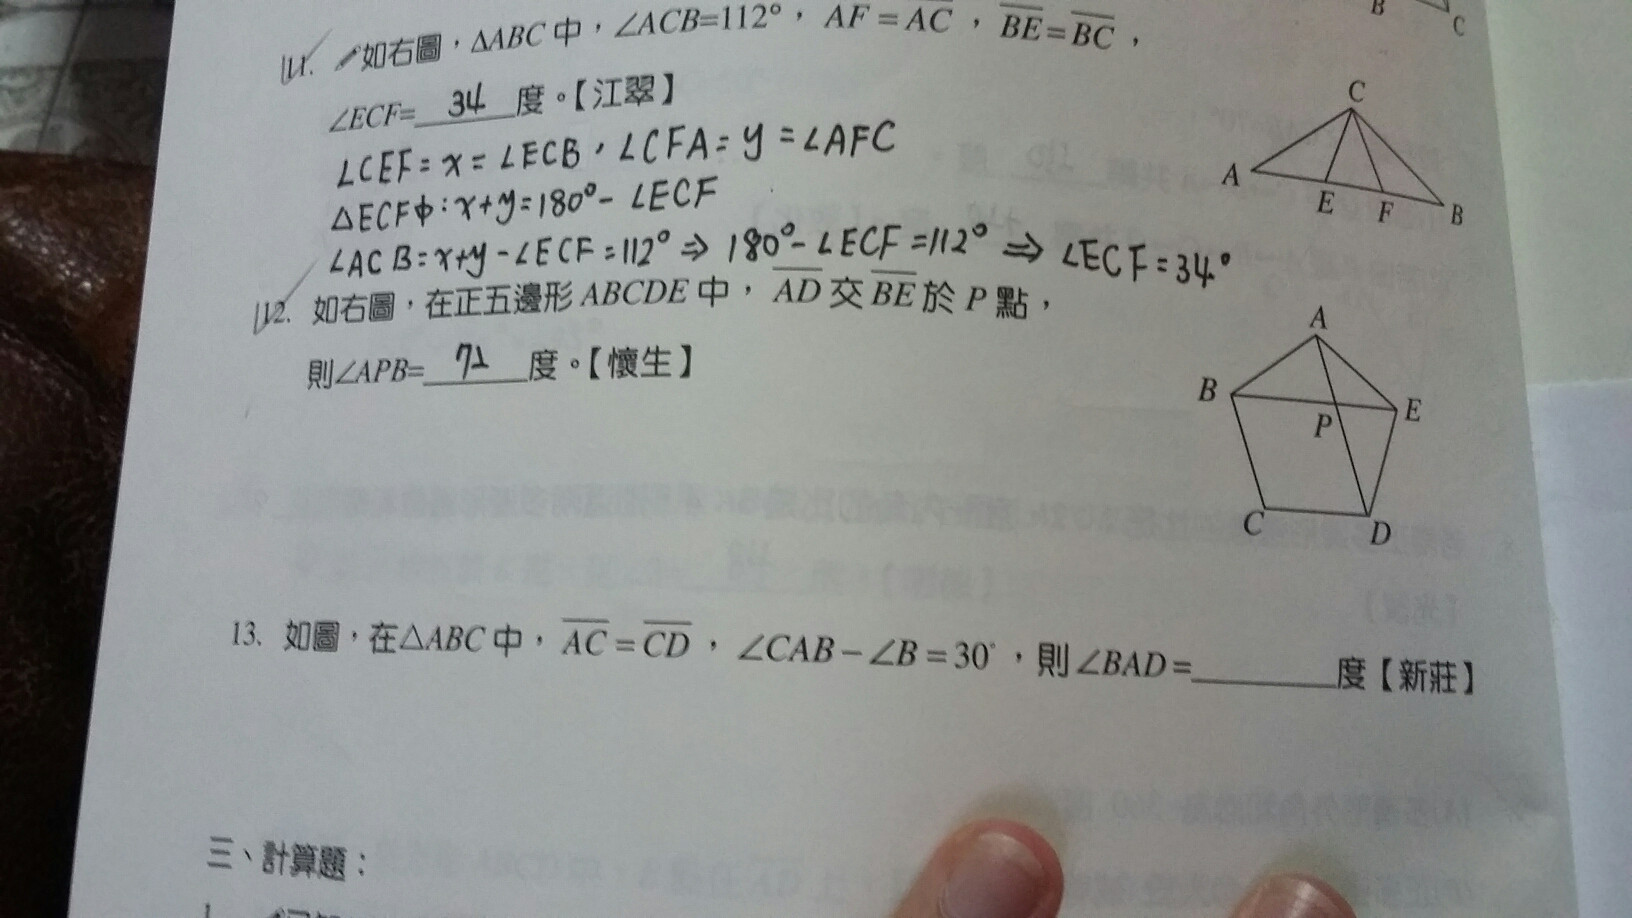 B
C
11. 如右圖，ΔABC 中，∠ACB=112°，AF = AC，BE = BC，
∠ECF= 34 度。【江翠】
∠CEF = x = ∠ECB，∠CFA = y = ∠AFC
△ECF中：x+y=180°- ∠ECF
∠ACB=x+y-∠ECF=112° ⇒ 180°-∠ECF=112° ⇒ ∠ECF=34°
C
A
E
F
B
12. 如右圖，在正五邊形 ABCDE 中，AD 交 BE 於 P 點，
則∠APB= 72 度。【懷生】
A
B
E
P
C
D
13. 如圖，在△ABC 中，AC = CD，∠CAB − ∠B = 30°，則 ∠BAD =________度【新莊】
三、計算題：